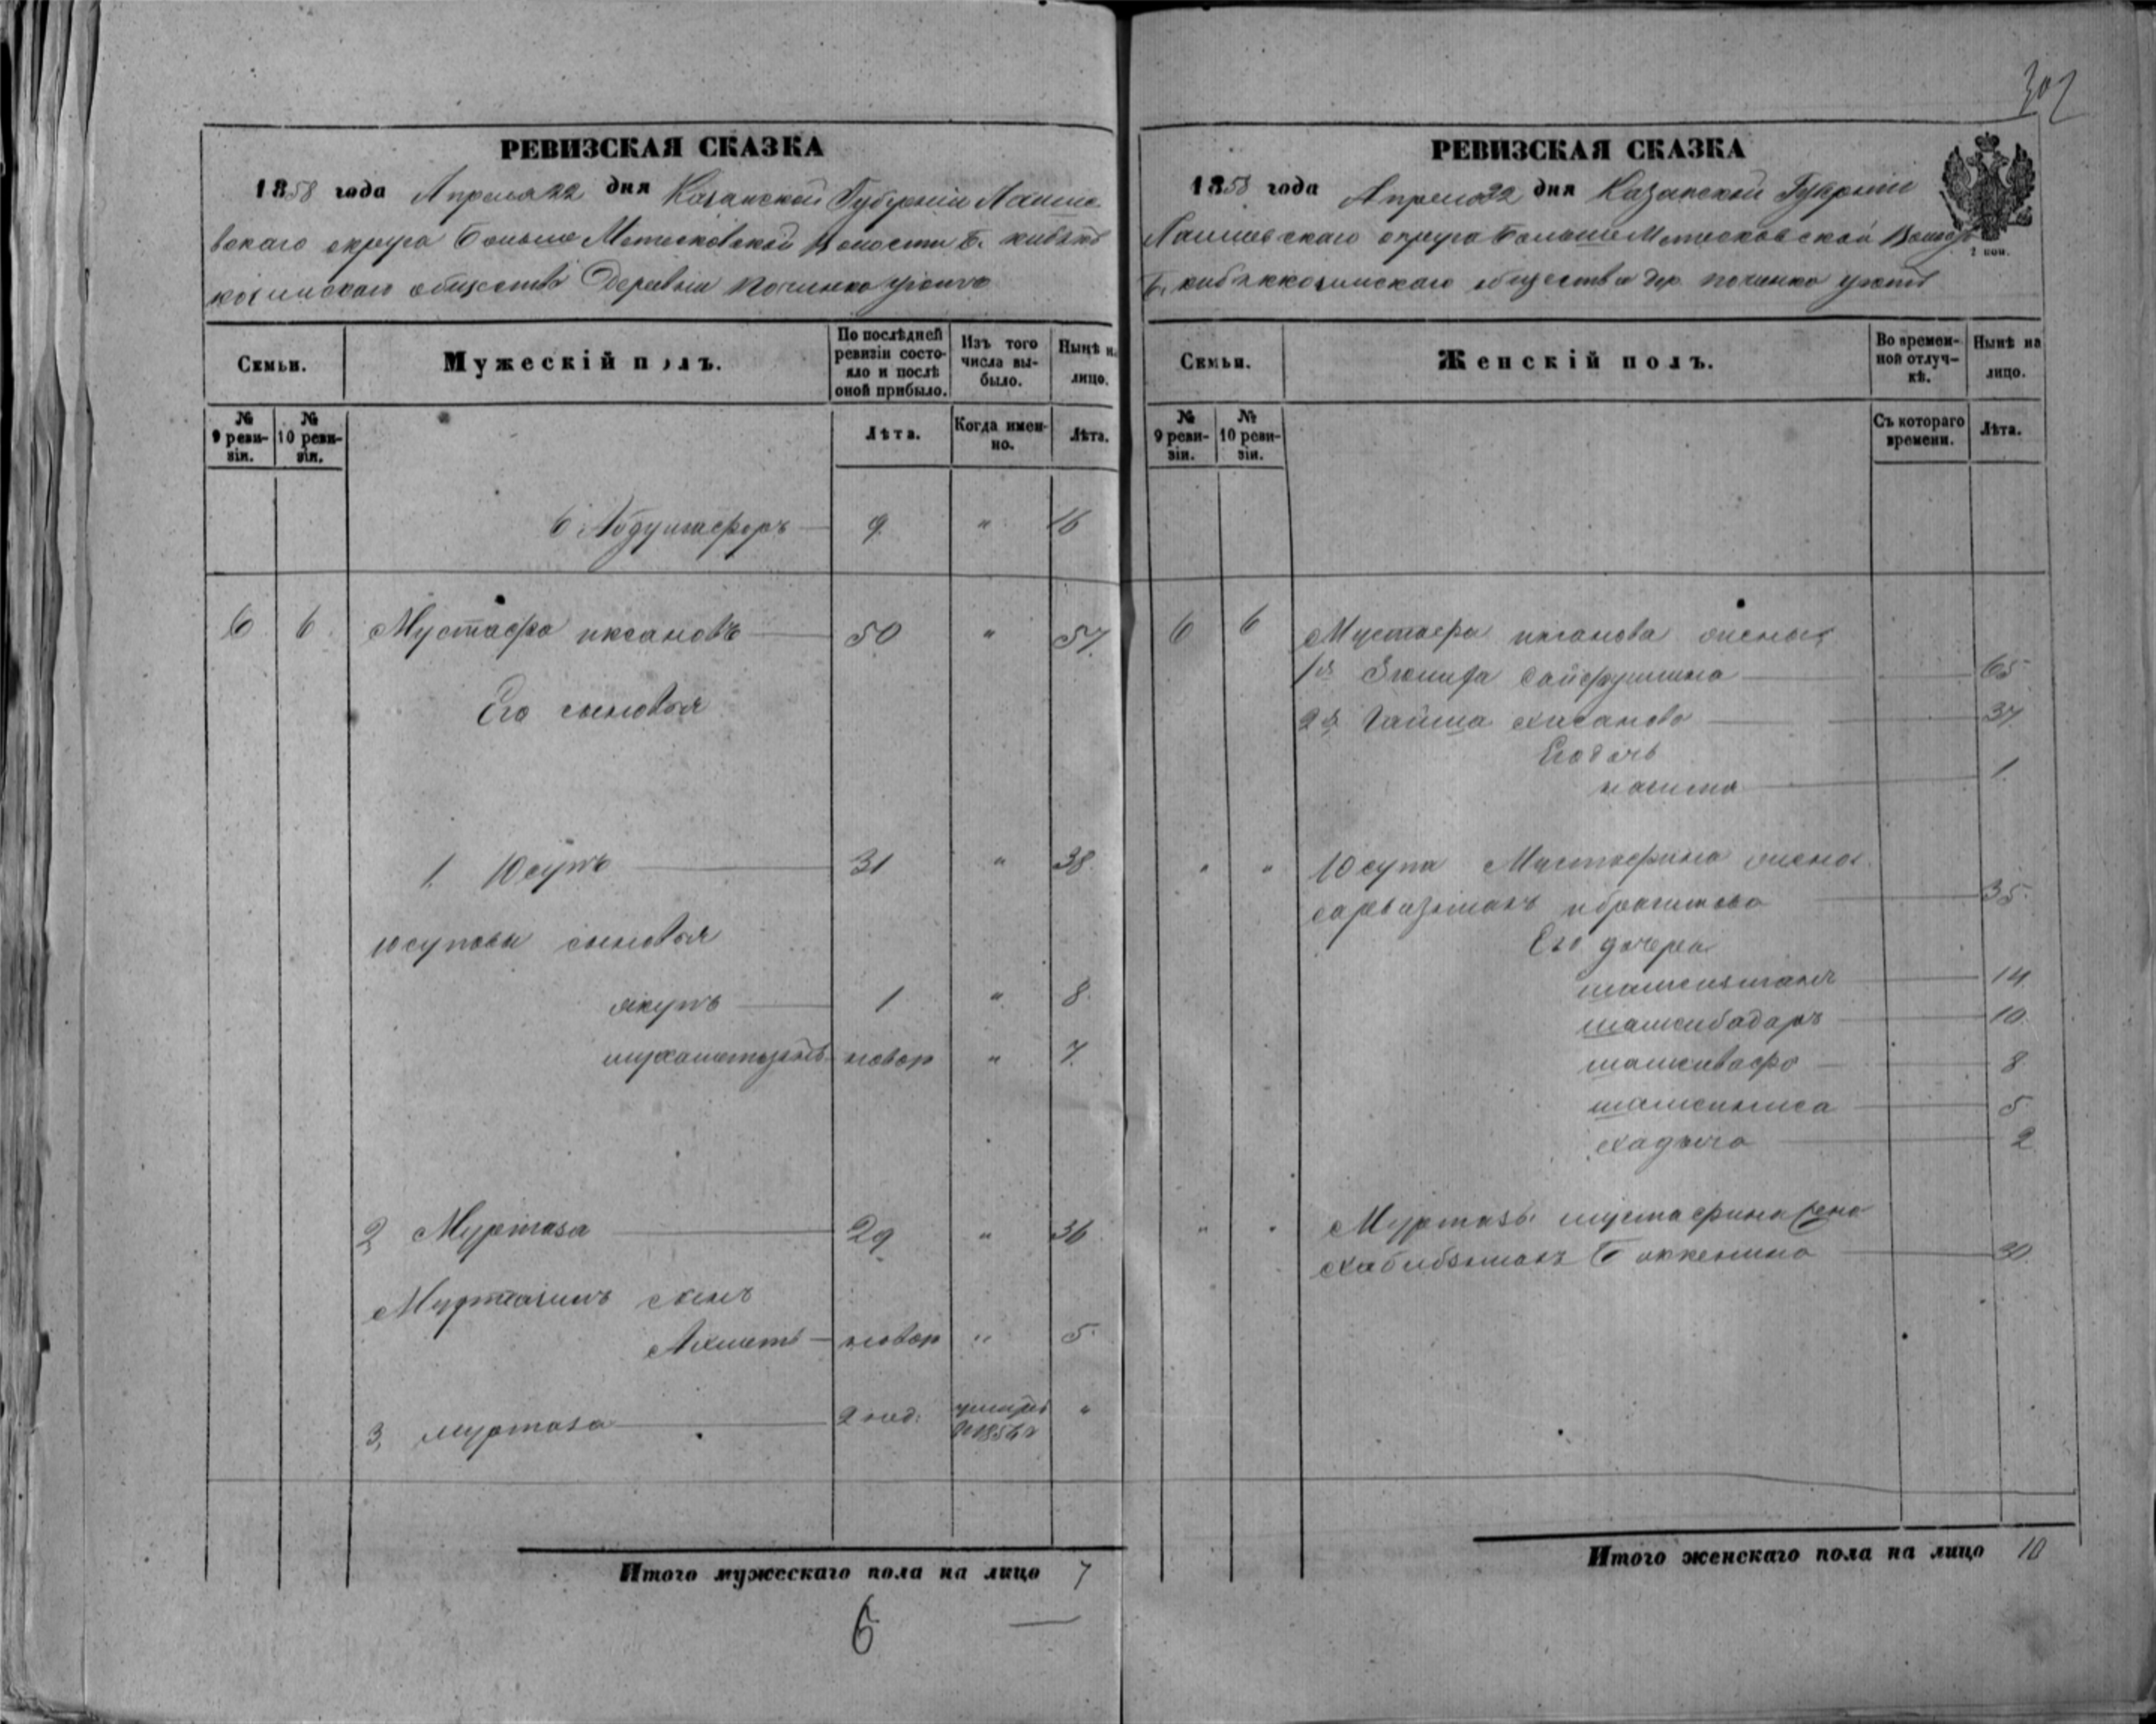 302
РЕВИЗСКАЯ СКАЗКА
1858 года Апреля 22 дня Казанской Губернiи Лаише
вскаго округа Больше Метесковской Волости Б. кибякъ
козинскаго общества Деревни Починка
Семьи.
Мужескiй полъ.
По послѣдней ревизiи состо-
яло и послѣ оной прибыло.
Изъ того числа вы-
было.
Нынѣ на лицо.
№ 9 реви-
зiи.
№ 10 реви-
зiи.
Лѣта.
Когда имен-
но.
Лѣта.
6 Абдулгафаръ 9 " 16
6 6 Мустафа иксановъ 50 " 57
Его сыновья
1. Юсупъ 31 " 38
юсуповы сыновья
якупъ 1 " 8
мухаметзянъ новор " 7
2 Муртаза 29 " 36
Муртазинъ сынъ
Ахметъ новор " 5
3, муртаза 2 нед: умеръ "
1856
Итого мужескаго пола на лицо 7
6
РЕВИЗСКАЯ СКАЗКА
1858 года Апреля 22 дня Казанской Губернiи
Лаишевскаго округа Больше Метесковской Волости
Б. кибяккозинскаго общества дер. починка
2 коп.
Семьи.
Женскiй полъ.
Во времен-
ной отлуч-
кѣ.
Нынѣ на лицо.
№ 9 реви-
зiи.
№ 10 реви-
зiи.
Съ котораго времени.
Лѣта.
6 6 Мустафы иксанова жены
1я Зюлифа Сайфулина 65
2я Гайша хисанова 37
Его дочь
1
" " Юсупа Мустафина жена
ибрагимова 35
Его дочери
14
шамсибадаръ 10
8
5
хадыча 2
" " Муртазы мустафина жена
30
Итого женскаго пола на лицо 10